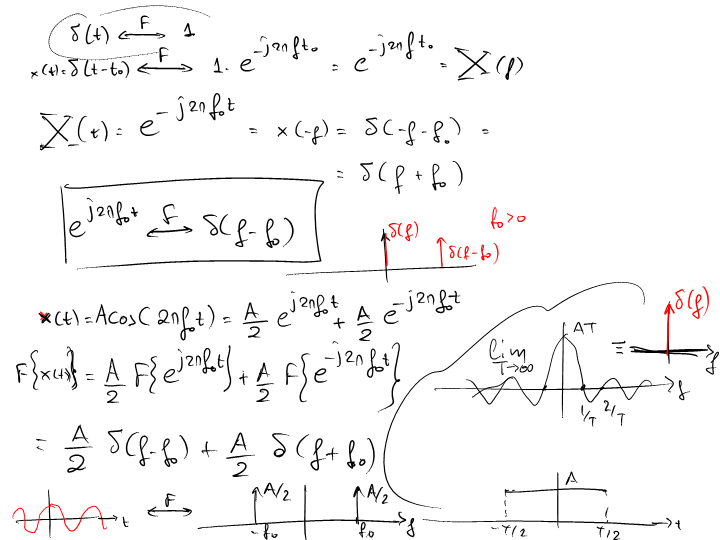 δ(t) ⟷F 1
x(t)=δ(t-t₀) ⟷F 1·e^(-j2πft₀) = e^(-j2πft₀) = X(f)
X(t) = e^(-j2πf₀t) = x(-f) = δ(-f-f₀) =
= δ(f+f₀)
e^(j2πf₀t) ⟷F δ(f-f₀)
δ(f) δ(f-f₀) f₀>0
x(t)=Acos(2πf₀t)= A/2 e^(j2πf₀t) + A/2 e^(-j2πf₀t)
F{x(t)} = A/2 F{e^(j2πf₀t)} + A/2 F{e^(-j2πf₀t)}
= A/2 δ(f-f₀) + A/2 δ(f+f₀)
lim T→∞ AT 1/T 2/T f ≡ δ(f) f
t ⟷F A/2 A/2 -f₀ f₀ f
A -T/2 T/2 t